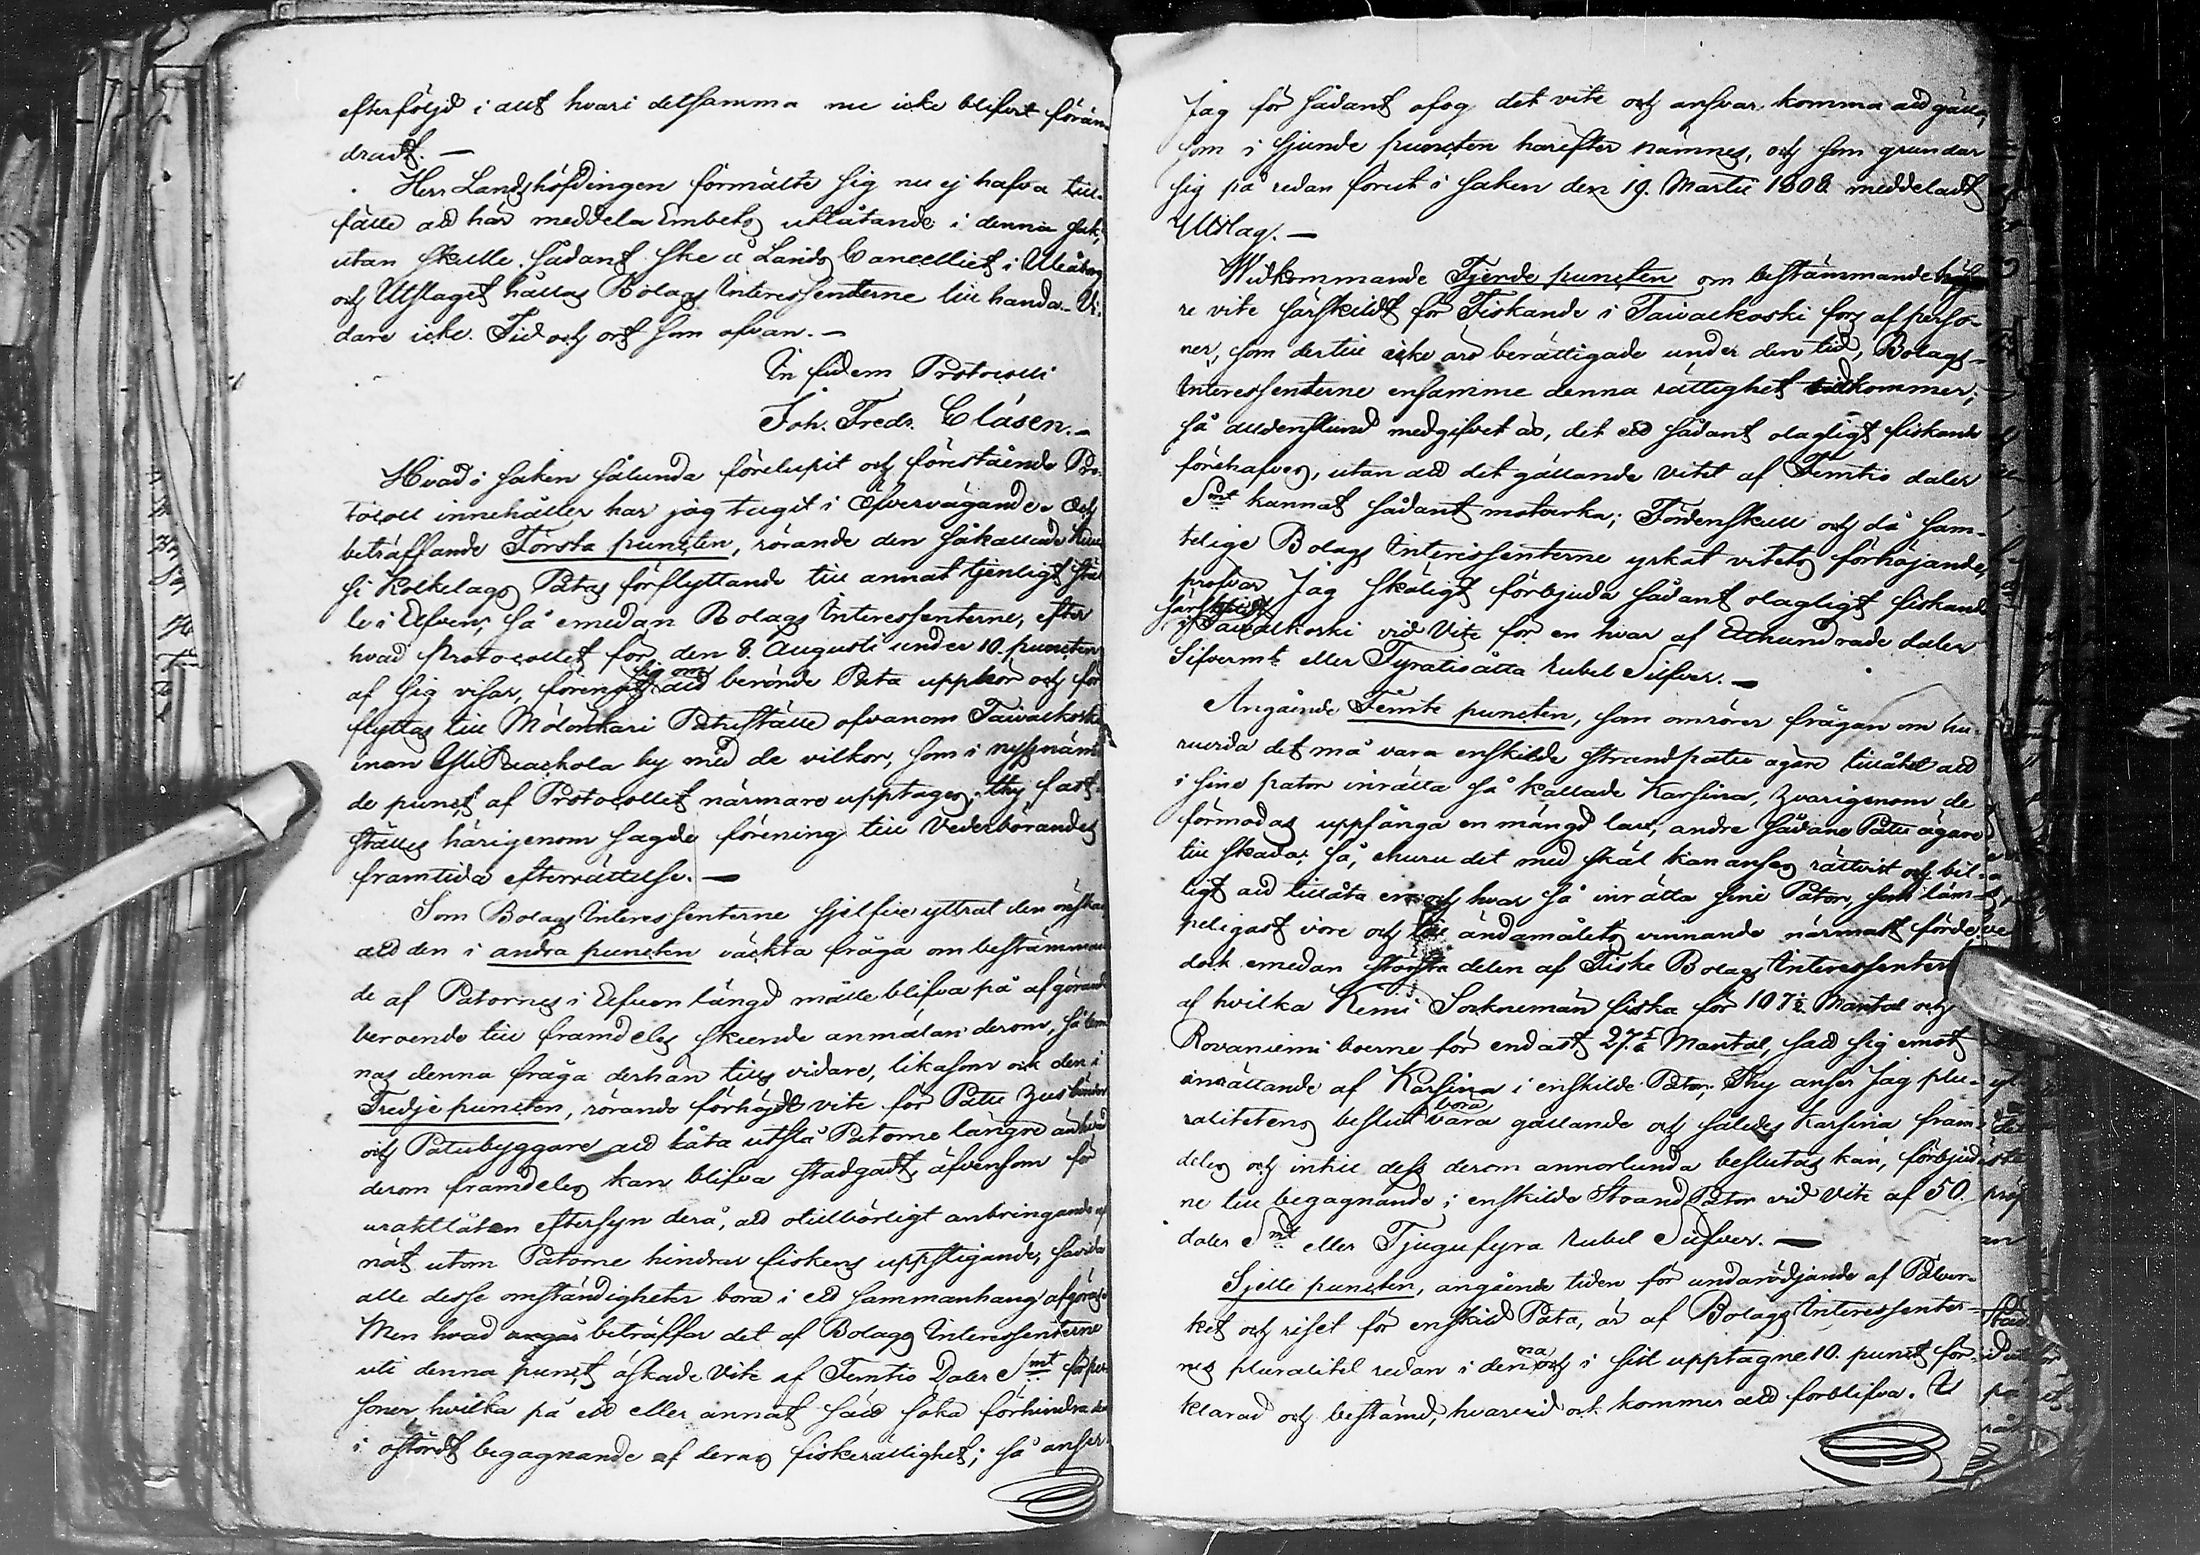 efterföljd i allt hvari detsamma nu icke blifvit förän-
dradt. —
Herr Landshöfdingen förmälte sig nu ej hafva till-
fälle att här meddela Embets utlåtande i denna sak,
utan skulle sådant ske å Lands Cancelliet i Uleåborg
och Utslaget hållas Bolags Interessenterne till handa. Vi-
dare icke. Tid och ort som ofvan. —
In fidem Protocolli
Joh. Fredr. Clásen. —
Hvad i saken sålunda förelupit och förestående Pro-
tocoll innehåller har jag tagit i öfvervägande. Och
beträffande Första puncten, rörande den såkallade
si Kolkelags Patas förflyttande till annat tjenligt stäl-
le i Elfven, så emedan Bolags Interessenterne, efter
hvad Protocollet för den 8. Augusti under 10. puncten
af sig visar, förenat sig om att berörde Pata upphör och för
flyttas till Mölönkari Pataställe ofvanom Taivalkoski
inan Yli Paackola by med de vilkor, som i nyssnäm-
de punct af Protocollet närmare upptages; thy fast-
ställes härigenom sagde förening till Vederbörandes
framtida efterrättelse. —
Som Bolags Interessenterne sjelfve yttrat den önskan
att den i andra puncten väckta fråga om bestämman-
de af Patornes i Elfven längd måtte blifva på afgörande
beroende till framdeles skeende anmälan derom, så läm-
nas denna fråga derhän tills vidare, likasom ock den i
Tredje puncten, rörande förhöjdt vite för Patu
och Patubyggare att låta utslå Patorne längre än hvad
derom framdeles kan blifva stadgadt, äfvensom för
uraktlåten eftersyn derå, att otillbörligt anbringande af
nät utom Patorne hindrar fiskens uppstigande, savida
alle desse omständigheter böra i ett sammanhang afgöras.
Men hvad angår beträffar det af Bolags Interessenterne
uti denna punct äskade Vite af Femtio Daler Smt för per-
soner hvilka på ett eller annat sätt söka förhindra dem
i ostördt begagnande af deras fiskerättighet; så anser
Jag för sådant ofog det vite och ansvar komma att gälla,
som i sjunde puncten härefter nämnes, och som grundar
sig på redan förut i saken den 19. Martii 1808 meddeladt
Utslag. —
Widkommande Fjerde puncten om bestämmande höga-
re vite särskildt för Fiskande i Taivalkoski fors af perso-
ner, som dertill icke äro berättigade under den tid, Bolags-
Interessenterne ensamme denna rättighet tillkommer;
så alldenstund medgifvet är, det ett sådant olagligt fiskande
förehafves, utan att det gällande vitet af Femtio daler
Smt kunnat sådant motverka; Fördenskull och då sam-
telige Bolags Interessenterne yrkat vitets förhöjande,
pröfvar Jag skäligt förbjuda sådant olagligt fiskande
särskildt
i Taivalkoski vid Vite för en hvar af Etthundrade daler
Silfvermt eller Fyratioåtta rubel Silfver. —
Angående Femte puncten, som omrörer frågan om hu-
ruvida det må vara enskilde strandpatu ägare tillåtet att
i sine pator inrätta så kallade Karsina, hvarigenom de
förmodas uppfånga en mängd lax, andre sådane Patu ägare
till skada; så, ehuru det med skäl kan anses rättvist och bil-
ligt att tillåta en och hvar så inrätta sine Pator, som läm-
peligast vore och till ändamålets vinnande närmast förde.
dock emedan största delen af Fiske Bolags Interessenter
af hvilka Kemi Sockenmän fiska för 107 1/2 Mantal och
Rovaniemi boerne för endast 27 Mantal, satt sig emot
inrättande af Karsina i enskilde Pator; Thy anser Jag plu-
ralitetens beslut böra vara gällande och således Karsina fram-
deles och intill dess derom annorlunda beslutas kan, förbjud-
ne till begagnande i enskilda Strand Pator vid Vite af 50.
daler Smt eller Tjugufyra rubel Silfver. —
Sjette puncten, angående tiden för undanrödjande af Påler-
ket och riset för enskild Pata, är af Bolags Interessenter-
nes pluralitet redan i den ena och i sist upptagne 10. punct för-
klarad och bestämd, hvarvid ock kommer att förblifva. U